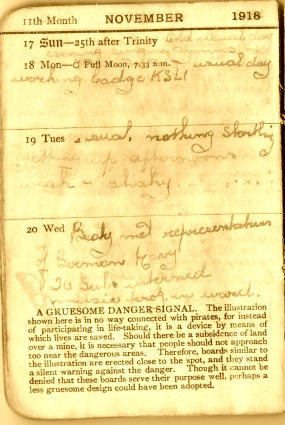 11th Month NOVEMBER 1918
17 Sun—25th after Trinity Cold usual day
evening singing hymns
18 Mon— Full Moon, 7.33 a.m. usual day
working badge KSLI
19 Tues usual, nothing startling
getting up afternoons
20 Wed Beaty met representatives
of German Navy
20 Subs interned
music prog. in ward.
A GRUESOME DANGER SIGNAL. The illustration
shown here is in no way connected with pirates, for instead
of participating in life-taking, it is a device by means of
which lives are saved. Should there be a subsidence of land
over a mine, it is necessary that people should not approach
too near the dangerous areas. Therefore, boards similar to
the illustration are erected close to the spot, and they stand
a silent warning against the danger. Though it cannot be
denied that these boards serve their purpose well, perhaps a
less gruesome design could have been adopted.